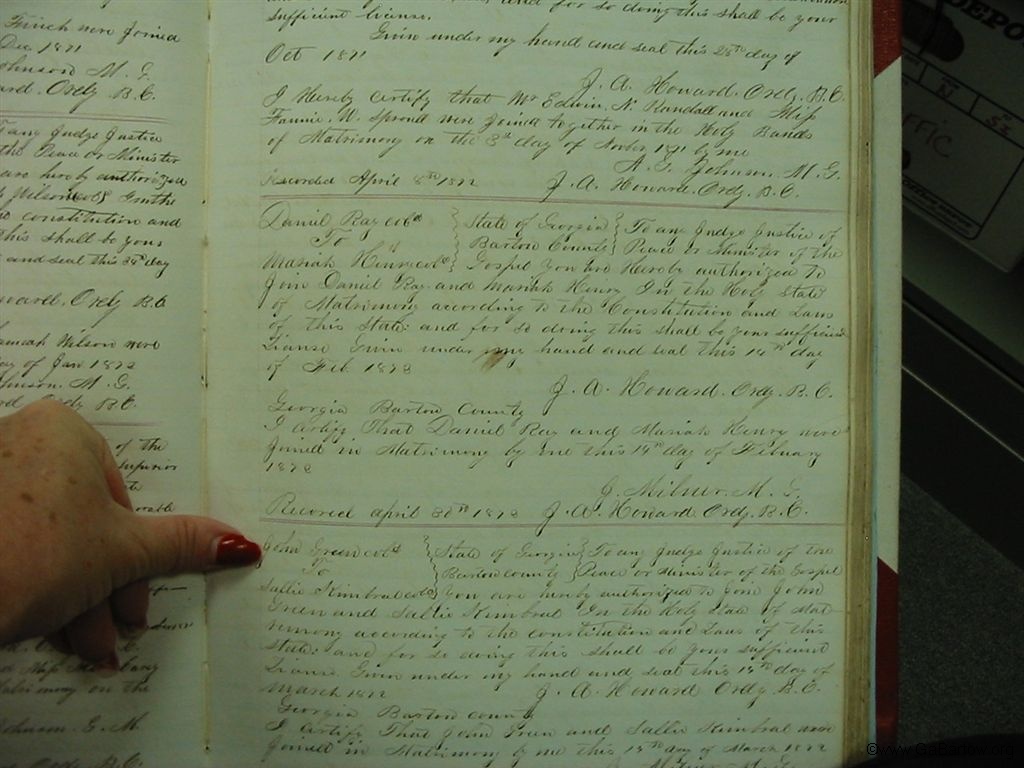 Finch were Joined
Dec 1871
Johnson M. G.
Howard. Ordy. B. C.
any Judge Justice
the Peace or Minister
are hereby authorized
constitution and
this shall be your
and seal this day
Howard. Ordy B. C.
Hannah Wilson were
day of Jan 1872
Johnson. M. G.
Ordy B. C.
of the
superior
Miss
Matrimony on the
Johnson. G. M.
Ordy B. C.
and for so doing this shall be your
sufficient license.
Given under my hand and seal this 28th day of
Oct 1871
J. A. Howard. Ordy. B. C.
I Hereby Certify that Mr Edwin. N. Randall and Miss
Fannie. W. Sproull were joined together in the Holy Bands
of Matrimony on the 8th day of Novbr 1871 by me
A. G. Johnson. M. G.
Recorded April 8th 1872 J. A. Howard. Ordy. B. C.
Daniel Ray cold State of Georgia To any Judge Justice of
To Bartow County Peace or Minister of the
Mariah Henry cold Gospel You are Hereby authorized to
Join Daniel Ray and Mariah Henry In the Holy State
of Matrimony according to the Constitution and Laws
of this State: and for so doing this shall be your sufficient
Lianse Given under my hand and seal this 14th day
of Feb 1872
J. A. Howard. Ordy. B. C.
Georgia Bartow County
I Certify That Daniel Ray and Mariah Henry were
Joined in Matrimony by me this 14th day of Febuary
1872
J. Milner. M. G.
Recored april 30th 1872 J. A. Howard Ordy. B. C.
John Green cold State of Georgia To any Judge Justice of the
To Bartow County Peace or Minister of the Gospel
Sallie Kimbral cold You are hereby authorized to Join John
Green and Sallie Kimbral In the Holy State of Mat
rimony according to the constitution and Laws of this
State: and for so doing this shall be your sufficient
Lianse. Given under my hand and seal this 14th day of
March 1872 J. A. Howard Ordy. B. C.
Georgia Bartow County
I Certify That John Green and Sallie Kimbral were
Joined in Matrimony by me this day of March 1872